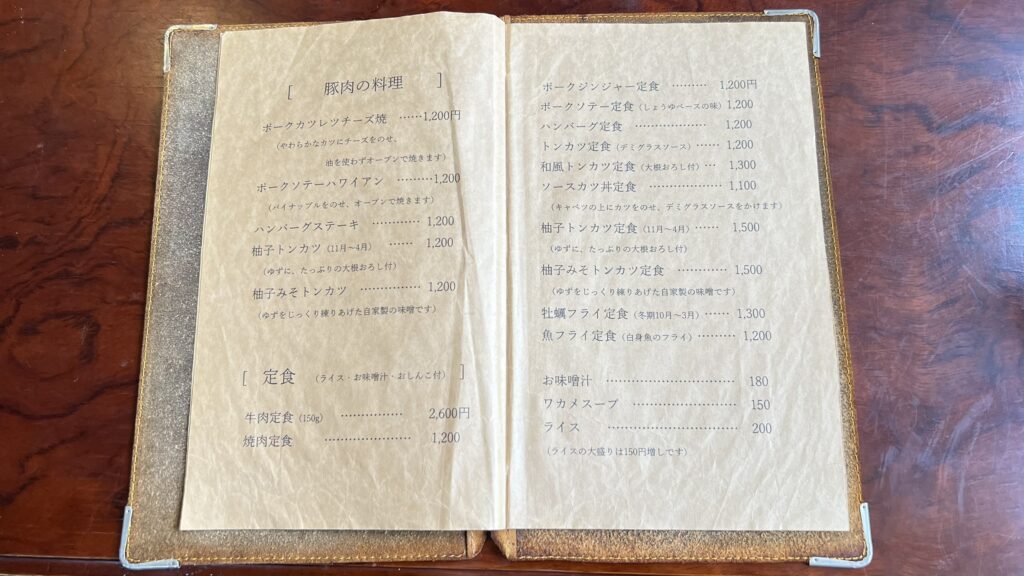 [ 豚肉の料理 ]
ポークカツレツチーズ焼 ……1,200円
（やわらかなカツにチーズをのせ、
油を使わずオーブンで焼きます）
ポークソテーハワイアン ………1,200
（パイナップルをのせ、オーブンで焼きます）
ハンバーグステーキ ………… 1,200
柚子トンカツ（11月〜4月） …… 1,200
（ゆずに、たっぷりの大根おろし付）
柚子みそトンカツ ………… 1,200
（ゆずをじっくり練りあげた自家製の味噌です）
[ 定食 （ライス・お味噌汁・おしんこ付） ]
牛肉定食（150g） ………… 2,600円
焼肉定食 ………………… 1,200
ポークジンジャー定食 ……… 1,200円
ポークソテー定食（しょうゆベースの味）1,200
ハンバーグ定食 ……………… 1,200
トンカツ定食（デミグラスソース）…… 1,200
和風トンカツ定食（大根おろし付）… 1,300
ソースカツ丼定食 ……………… 1,100
（キャベツの上にカツをのせ、デミグラスソースをかけます）
柚子トンカツ定食（11月〜4月）…… 1,500
（ゆずに、たっぷりの大根おろし付）
柚子みそトンカツ定食 ………… 1,500
（ゆずをじっくり練りあげた自家製の味噌です）
牡蠣フライ定食（冬期10月〜3月）…… 1,300
魚フライ定食（白身魚のフライ）……… 1,200
お味噌汁 ………………………… 180
ワカメスープ …………………… 150
ライス ………………………… 200
（ライスの大盛りは150円増しです）